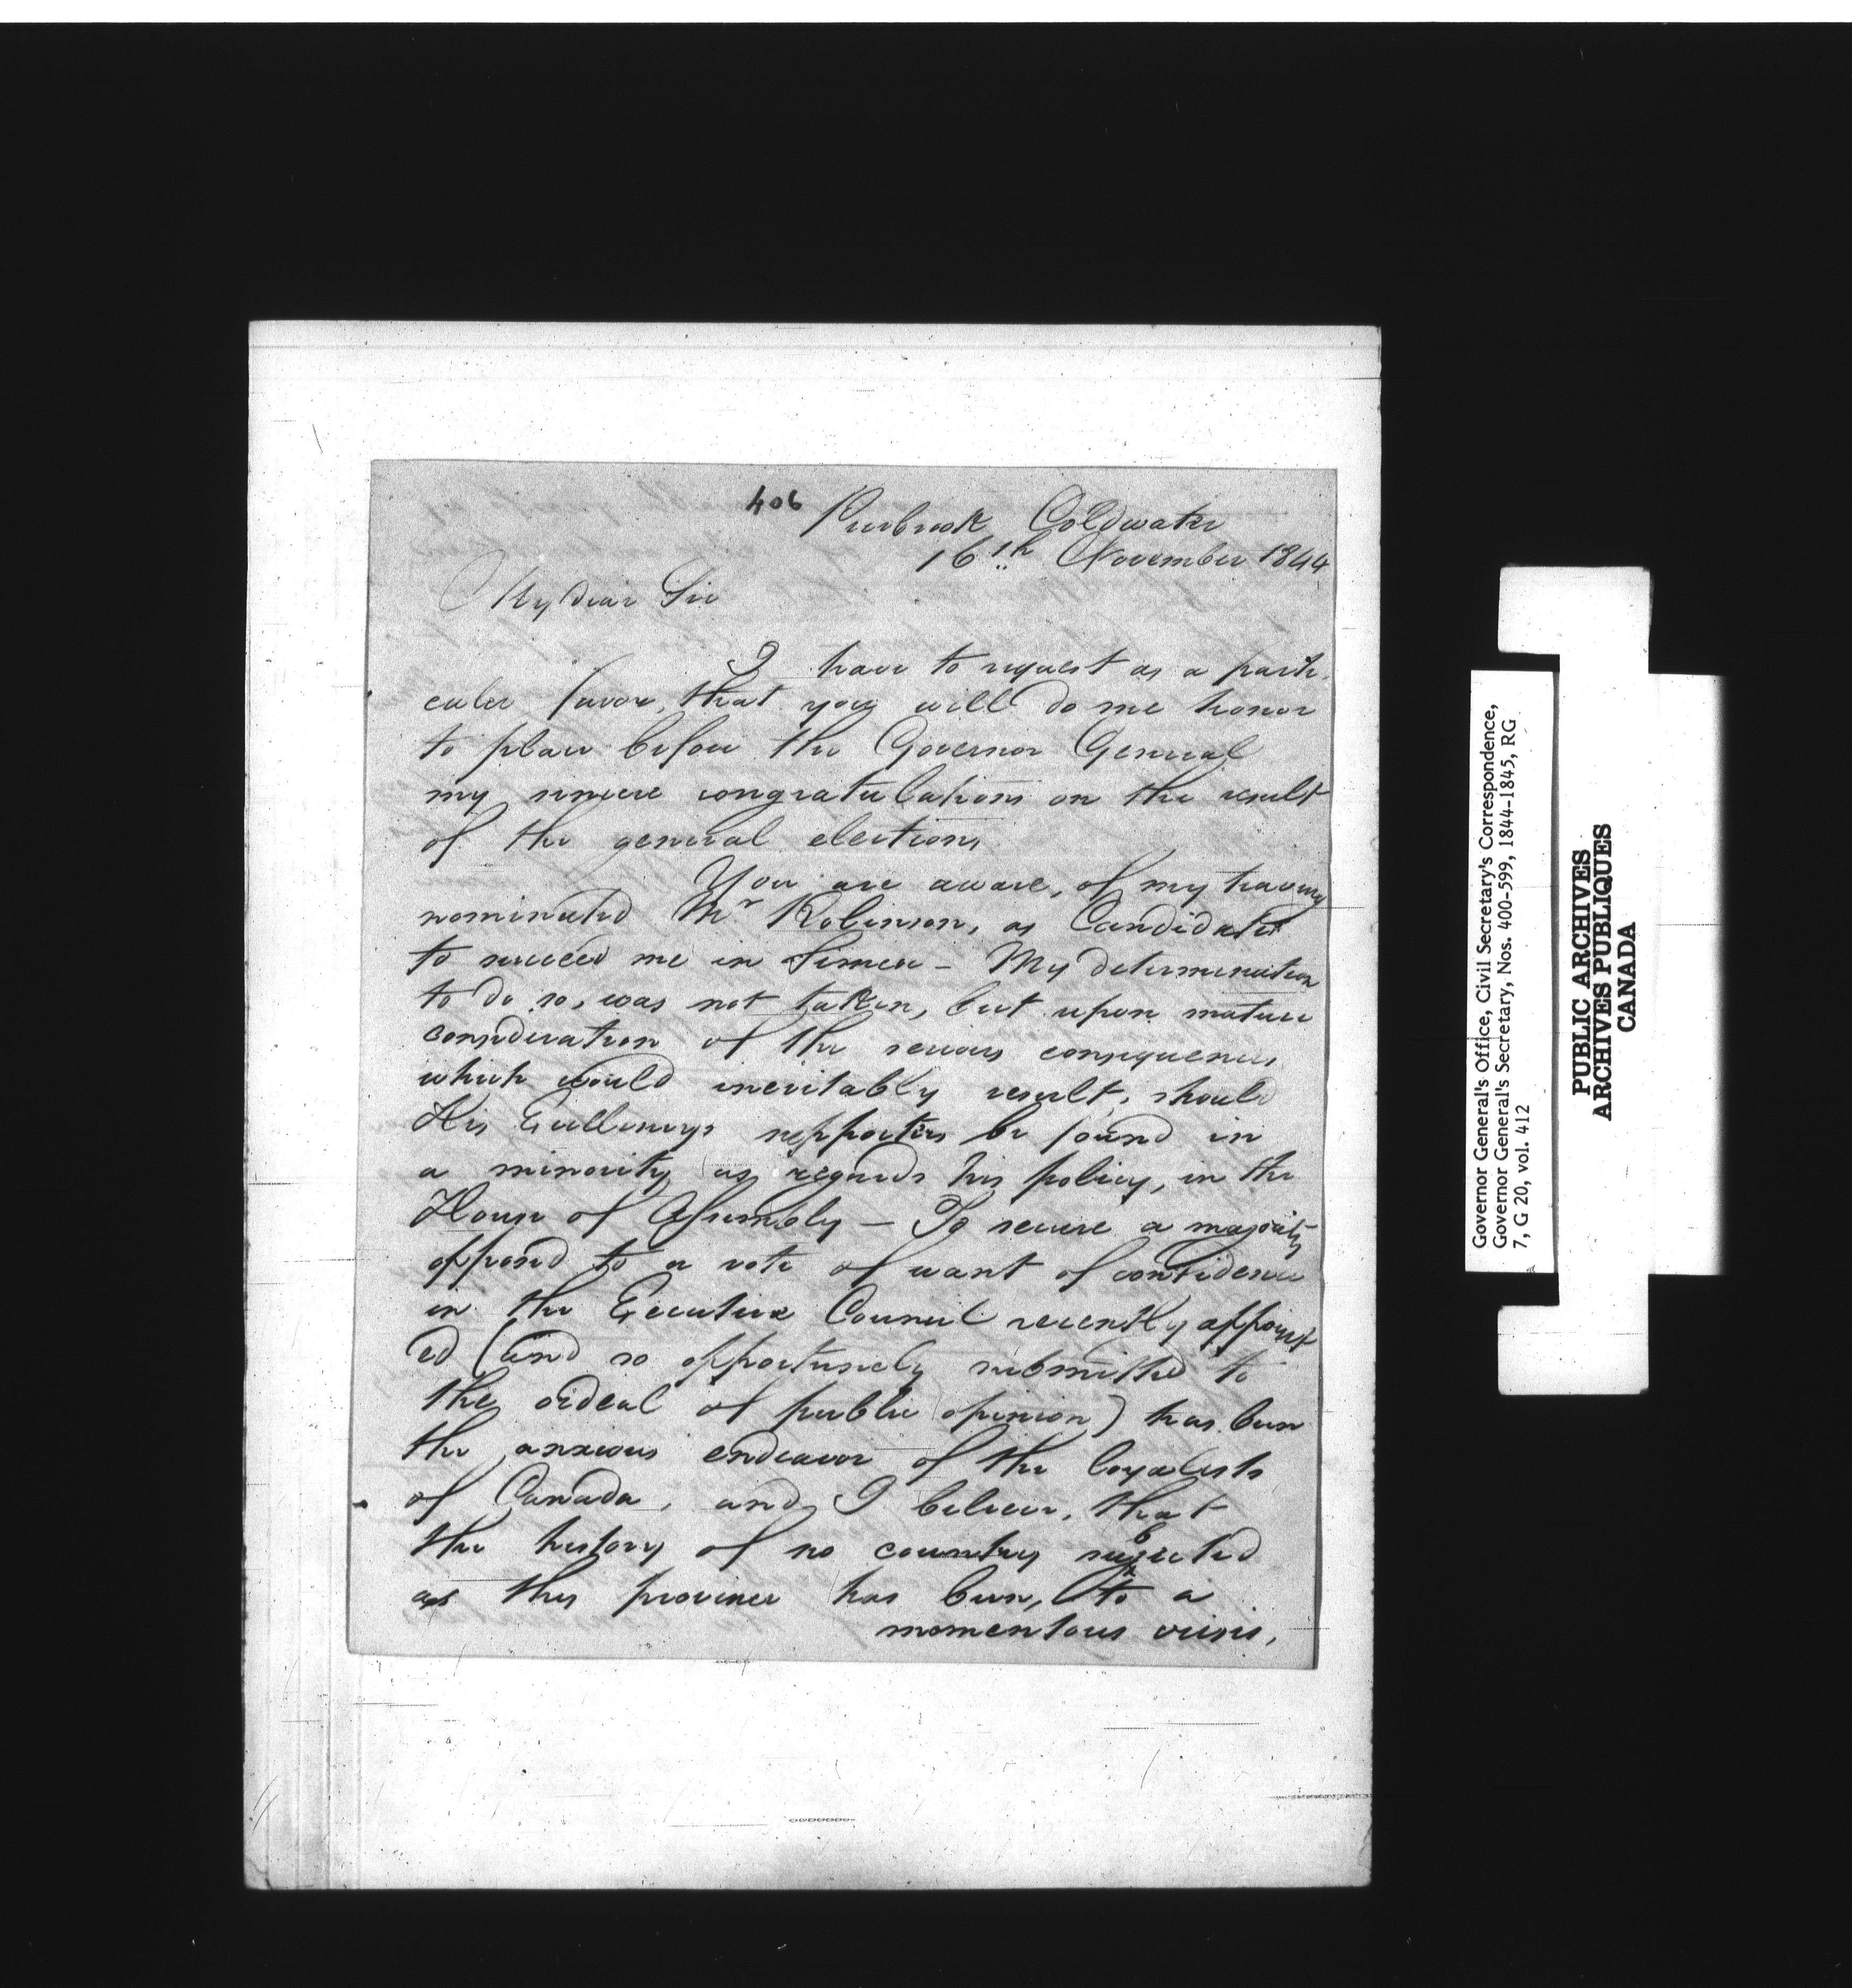 406
Purbrook Coldwater
16th November 1844
My dear Sir
I have to request as a parti-
cular favor, that you will do me honor
to place before the Governor General
my sincere congratulations on the result
of the general elections
You are aware, of my having
nominated Mr Robinson, as Candidate
to succeed me in Simcoe - My determination
to do so, was not taken, but upon mature
consideration of the serious consequences
which would inevitably result, should
His Excellencys supporters be found in
a minority as regards his policy, in the
House of Assembly - To secure a majority
opposed to a vote of want of confidence
in the Executive Council recently appoint
ed (and so opportunely submitted to
the ordeal of public opinion) has been
the anxious endeavor of the loyalists
of Canada, and I believe, that
the history of no country subjected
as this province has been, to a
momentous crisis,
Governor General's Office, Civil Secretary's Correspondence,
Governor General's Secretary, Nos. 400-599, 1844-1845, RG
7, G 20, vol. 412
PUBLIC ARCHIVES
ARCHIVES PUBLIQUES
CANADA